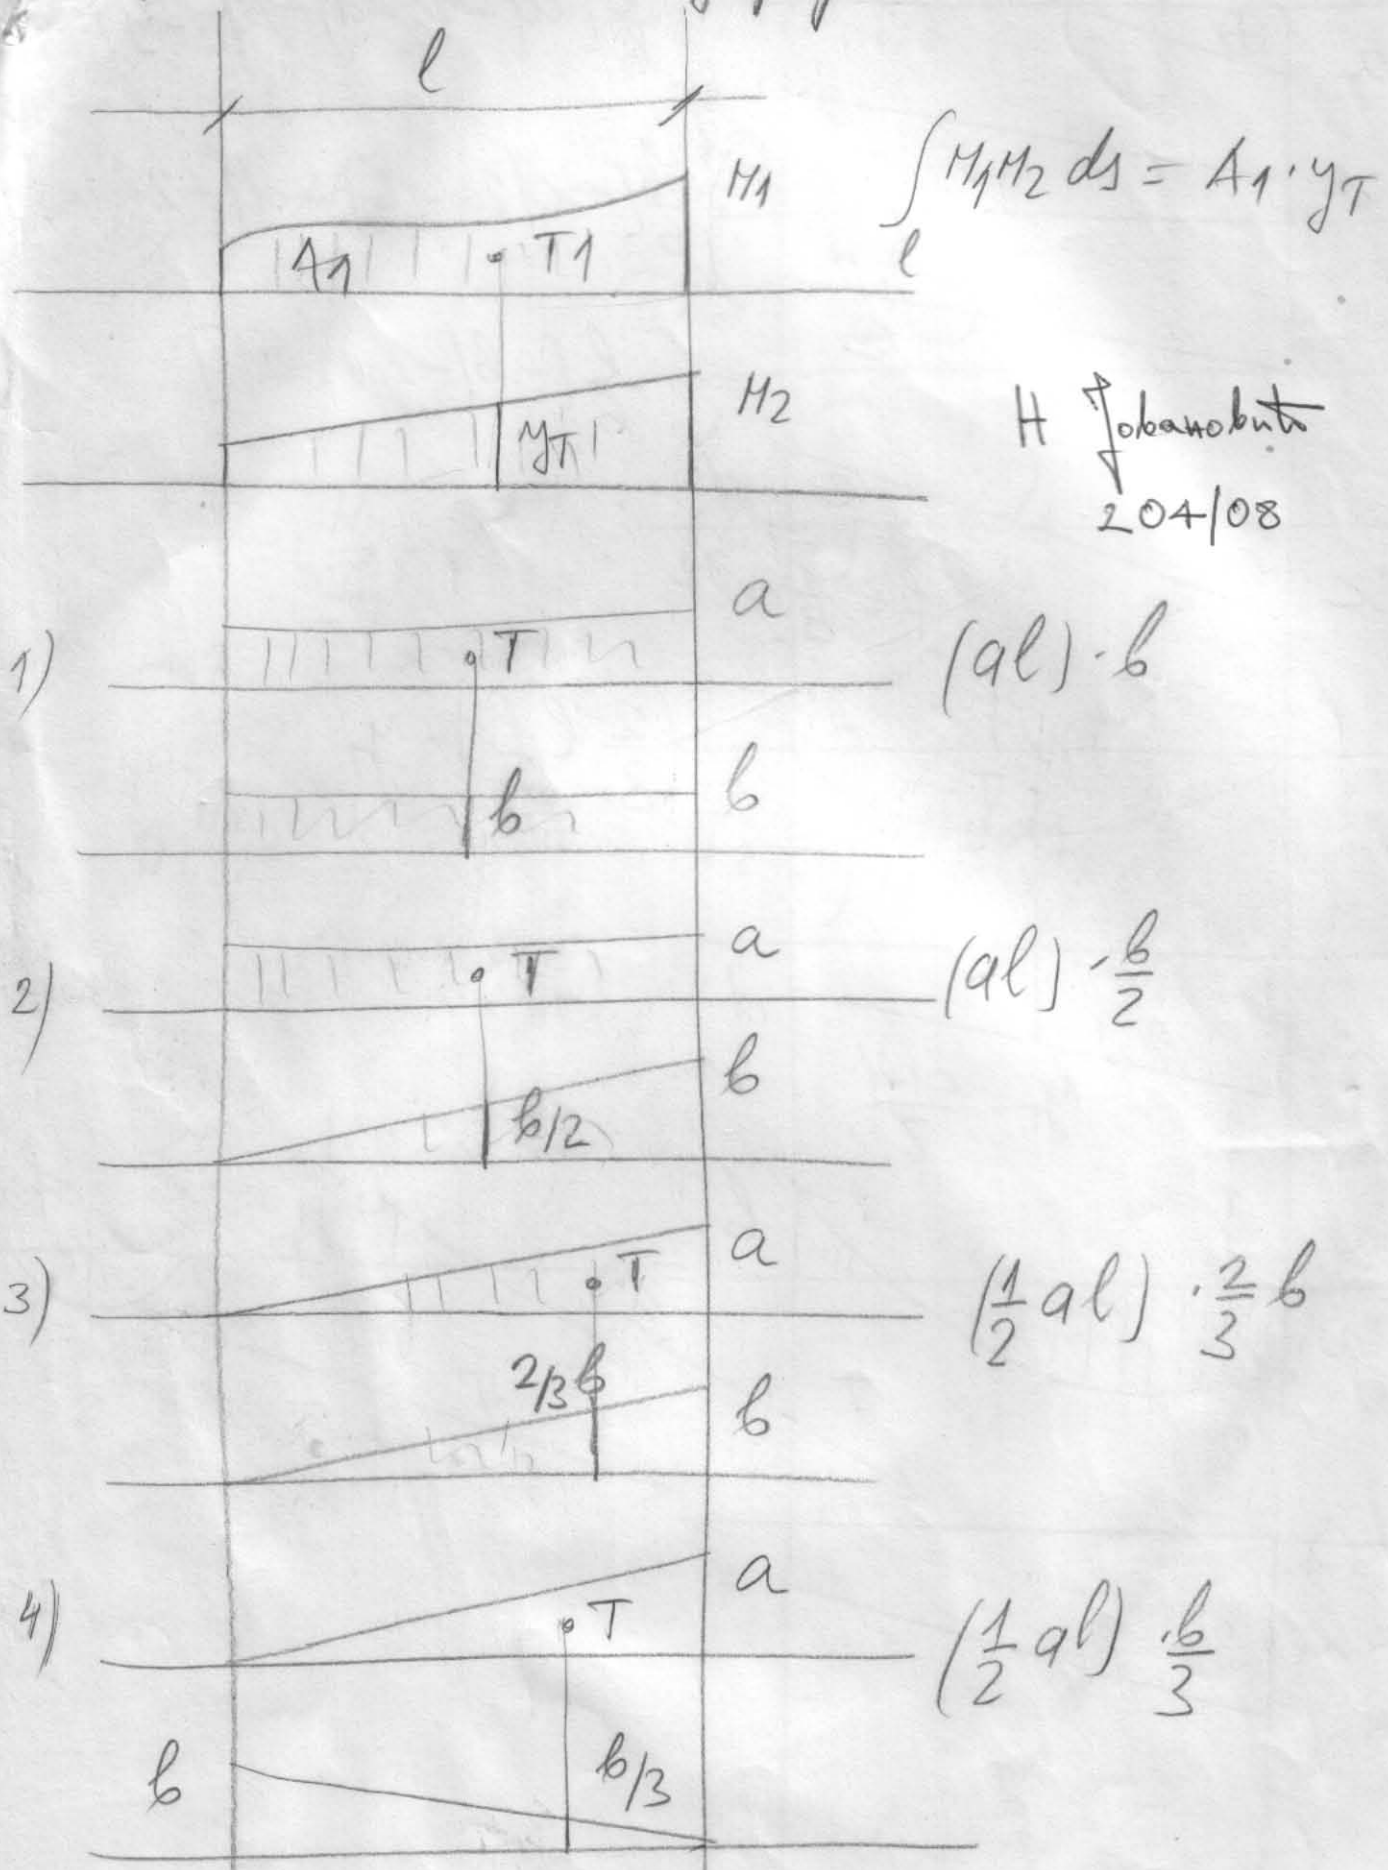 l
M1
∫ M1M2 ds = A1·yT
l
A1 T1
M2
yT
Н Јовановић
204/08
1)
a
T
(al)·b
b
b
2)
a
T
(al)·b/2
b
b/2
3)
a
T
(1/2 al)·2/3 b
2/3 b
b
4)
a
T
(1/2 al)·b/3
b
b/3